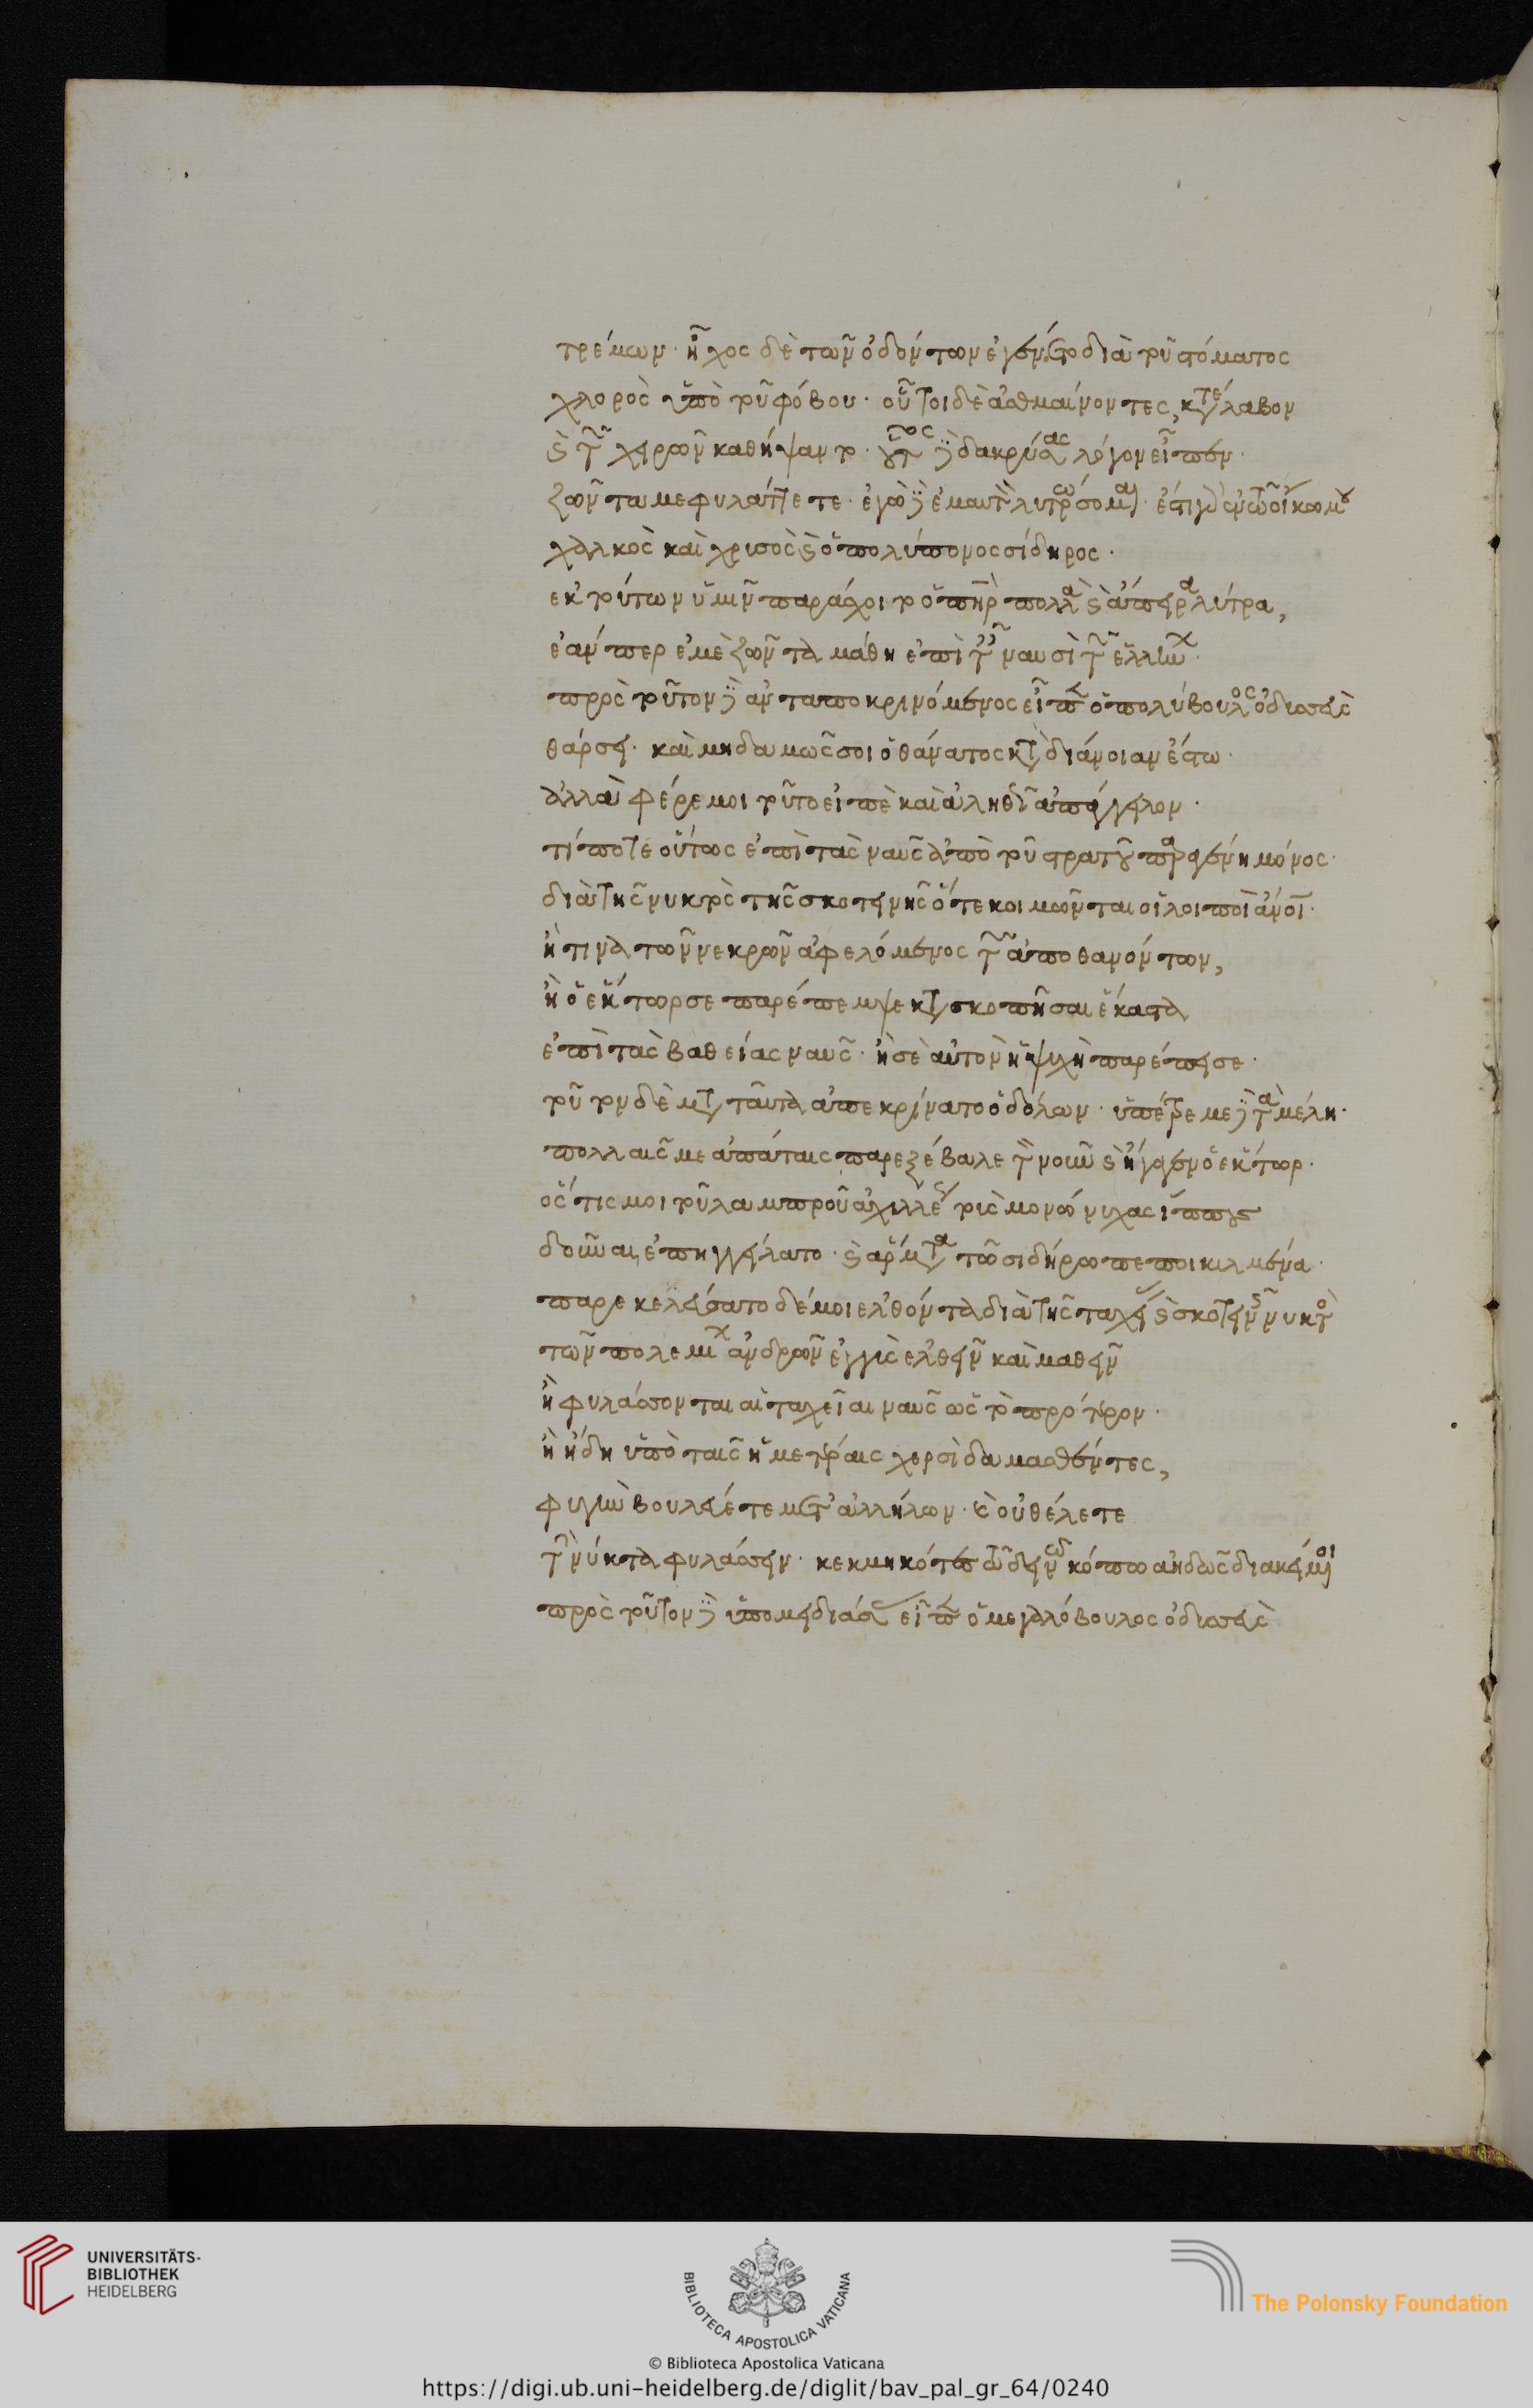 τρέμων· ἦχος δὲ τῶν ὀδόντων ἐγένετο διὰ τοῦ στόματος
χλορὸς ὑπὸ τοῦ φόβου· οὗτοι δὲ ἀσθμαίνοντες, κατέλαβον
καὶ τῶν χειρῶν καθήψαντο· οὗτος δὲ δακρύσας λόγον εἶπεν·
ζῶντα με φυλάττετε· ἐγὼ δὲ ἐμαυτὸν λυτρώσομαι· ἔστι γὰρ ἐν τῶ οἴκω μου
χαλκὸς καὶ χρυσὸς καὶ ὁ πολύπονος σίδηρος·
ἐκ τούτων ὑμῖν παράσχοιτο ὁ πατὴρ πολλὰ καὶ ἄπειρα λύτρα,
ἐάν περ ἐμὲ ζῶντα μάθη ἐπὶ ταῖς ναυσὶ τῶν ἑλλήνων·
πρὸς τοῦτον δὲ ἀνταποκρινόμενος εἶπεν ὁ πολύβουλος ὀδυσσεὺς
θάρσει· καὶ μηδαμῶς σοι ὁ θάνατος κατὰ διάνοιαν ἔστω·
ἀλλὰ φέρε μοι τοῦτο εἰπὲ καὶ ἀληθῶς ἀπάγγειλον·
τί ποτε οὕτως ἐπὶ τὰς ναῦς ἀπὸ τοῦ στρατοῦ παραγένη μόνος·
διὰ τῆς νυκτὸς τῆς σκοτεινῆς ὅτε κοιμῶνται οἱ λοιποὶ ἄνοι·
ἢ τινὰ τῶν νεκρῶν ἀφελόμενος τῶν ἀποθανόντων,
ἢ ὁ ἕκτωρ σε παρέπεμψε κατασκοπῆσαι ἕκαστα
ἐπὶ τὰς βαθείας ναῦς· ἢ σὲ αὐτὸν ἡ ψυχὴ παρέπεισε·
τοῦτον δὲ μετὰ ταῦτα ἀπεκρίνατο ὁ δόλων· ὑπέτρεμε δὲ τὰ μέλη·
πολλαῖς με ἀπάταις παρεξέβαλε τὸν νοῦν καὶ ἤγαγεν ὁ ἕκτωρ·
ὅστις μοι τοῦ λαμπροῦ ἀχιλλέως τοὺς μονώνυχας ἵππους
δοῦναι, ἐπηγγείλατο· καὶ ἅρματα τῶ σιδήρω πεποικιλμένα·
παρεκελεύσατο δέ μοι ἐλθόντα διὰ τῆς ταχείας καὶ σκοτεινῆς νυκτὸς
τῶν πολεμικῶν ἀνδρῶν ἐγγὺς ἐλθεῖν καὶ μαθεῖν
ἢ φυλάσσονται αἱ ταχεῖαι ναῦς ὡς τὸ πρότερον·
ἢ ἤδη ὑπὸ ταῖς ἡμετέραις χερσὶ δαμασθέντες,
φυγὴν βουλεύετε μετ' ἀλλήλων· καὶ οὐ θέλετε
τὴν νύκτα φυλάσσειν· κεκμηκότες τῶ δεινῶ κόπω ἀηδῶς διακείμενοι
πρὸς τοῦτον δὲ ὑπομειδιάσας εἶπεν ὁ μεγαλόβουλος ὀδυσσεὺς
UNIVERSITÄTS-
BIBLIOTHEK
HEIDELBERG
BIBLIOTECA APOSTOLICA VATICANA
The Polonsky Foundation
© Biblioteca Apostolica Vaticana
https://digi.ub.uni-heidelberg.de/diglit/bav_pal_gr_64/0240